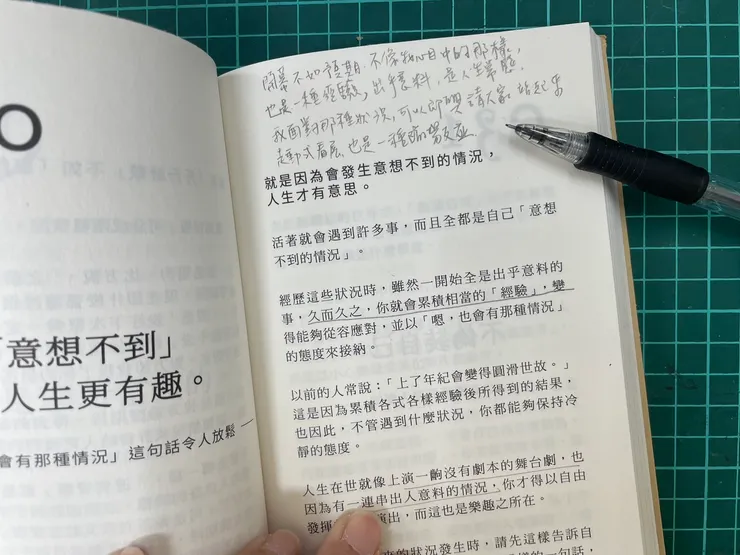 「意想不到」
人生更有趣。
會有那種情況」這句話令人放鬆
開幕不如預期.不像我心目中的那樣,
也是一種經驗,出意料,是人生常態.
我面對那種狀況,可以即興 請大家 站起來
走動式看展,也是一種臨場反應
就是因為會發生意想不到的情況,
人生才有意思。
活著就會遇到許多事,而且全都是自己「意想
不到的情況」。
經歷這些狀況時,雖然一開始全是出乎意料的
事,久而久之,你就會累積相當的「經驗」,變
得能夠從容應對,並以「嗯,也會有那種情況」
的態度來接納。
以前的人常說:「上了年紀會變得圓滑世故。」
這是因為累積各式各樣經驗後所得到的結果,
也因此,不管遇到什麼狀況,你都能夠保持冷
靜的態度。
人生在世就像上演一齣沒有劇本的舞台劇,也
因為有一連串出人意料的情況,你才得以自由
發揮 演出,而這也是樂趣之所在。
的狀況發生時,請先這樣告訴自
樣的一句話,